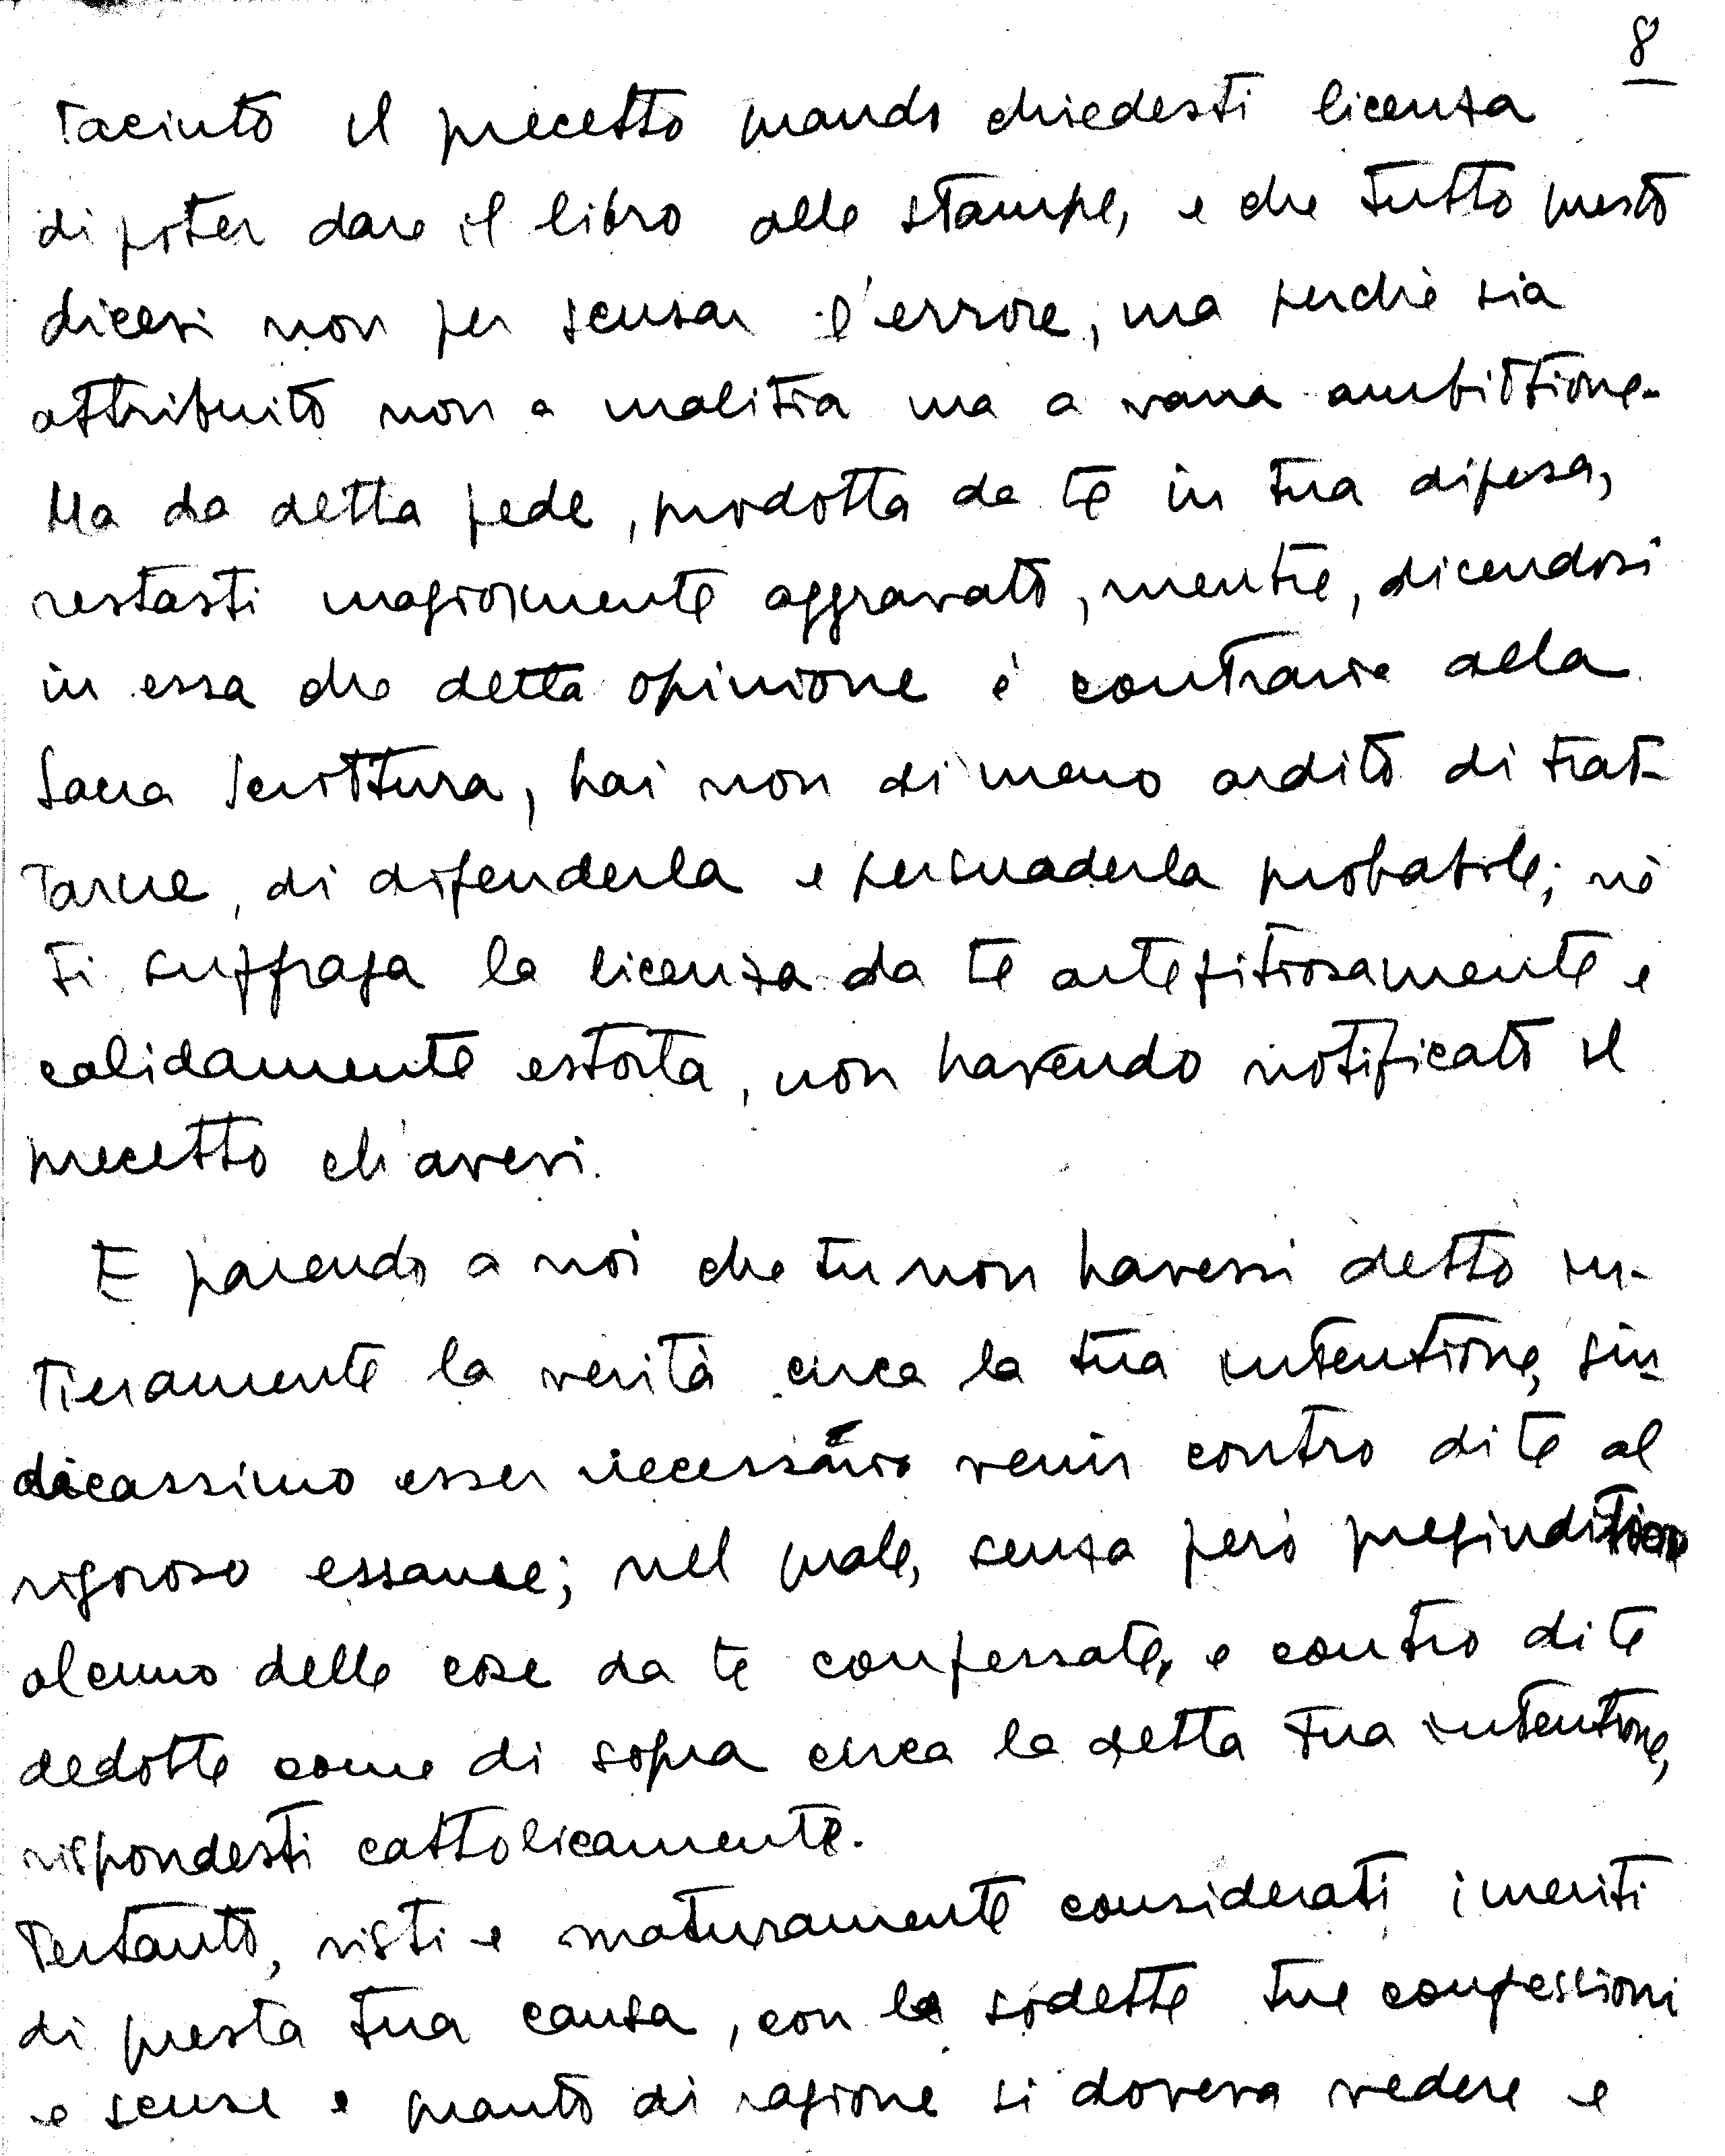 8
taciuto il precetto quando chiedesti licenza
di poter dare il libro alle stampe, e che tutto questo
dicevi non per scusar l'errore, ma perchè sia
attribuito non a malitia ma a vana ambittione.
Ma da detta fede, prodotta da te in tua difesa,
restasti magiormente aggravato, mentre, dicendosi
in essa che detta opinione è contraria alla
Sacra Scrittura, hai non di meno ardito di trat-
tarne, di difenderla e persuaderla probabile; nè
ti suffraga la licenza da te artefitiosamente e
calidamente estorta, non havendo notificato il
precetto ch'avevi.
E parendo a noi che tu non havessi detto in-
tieramente la verità circa la tua intentione, giu-
dicassimo esser necessario venir contro di te al
rigoroso essame; nel quale, senza però pregiuditio
alcuno delle cose da te confessate, e contro di te
dedotte come di sopra circa la detta tua intentione,
rispondesti cattolicamente.
Pertanto, visti e maturamente considerati i meriti
di questa tua causa, con le sodette tue confessioni
e scuse e quanto di ragione si doveva vedere e